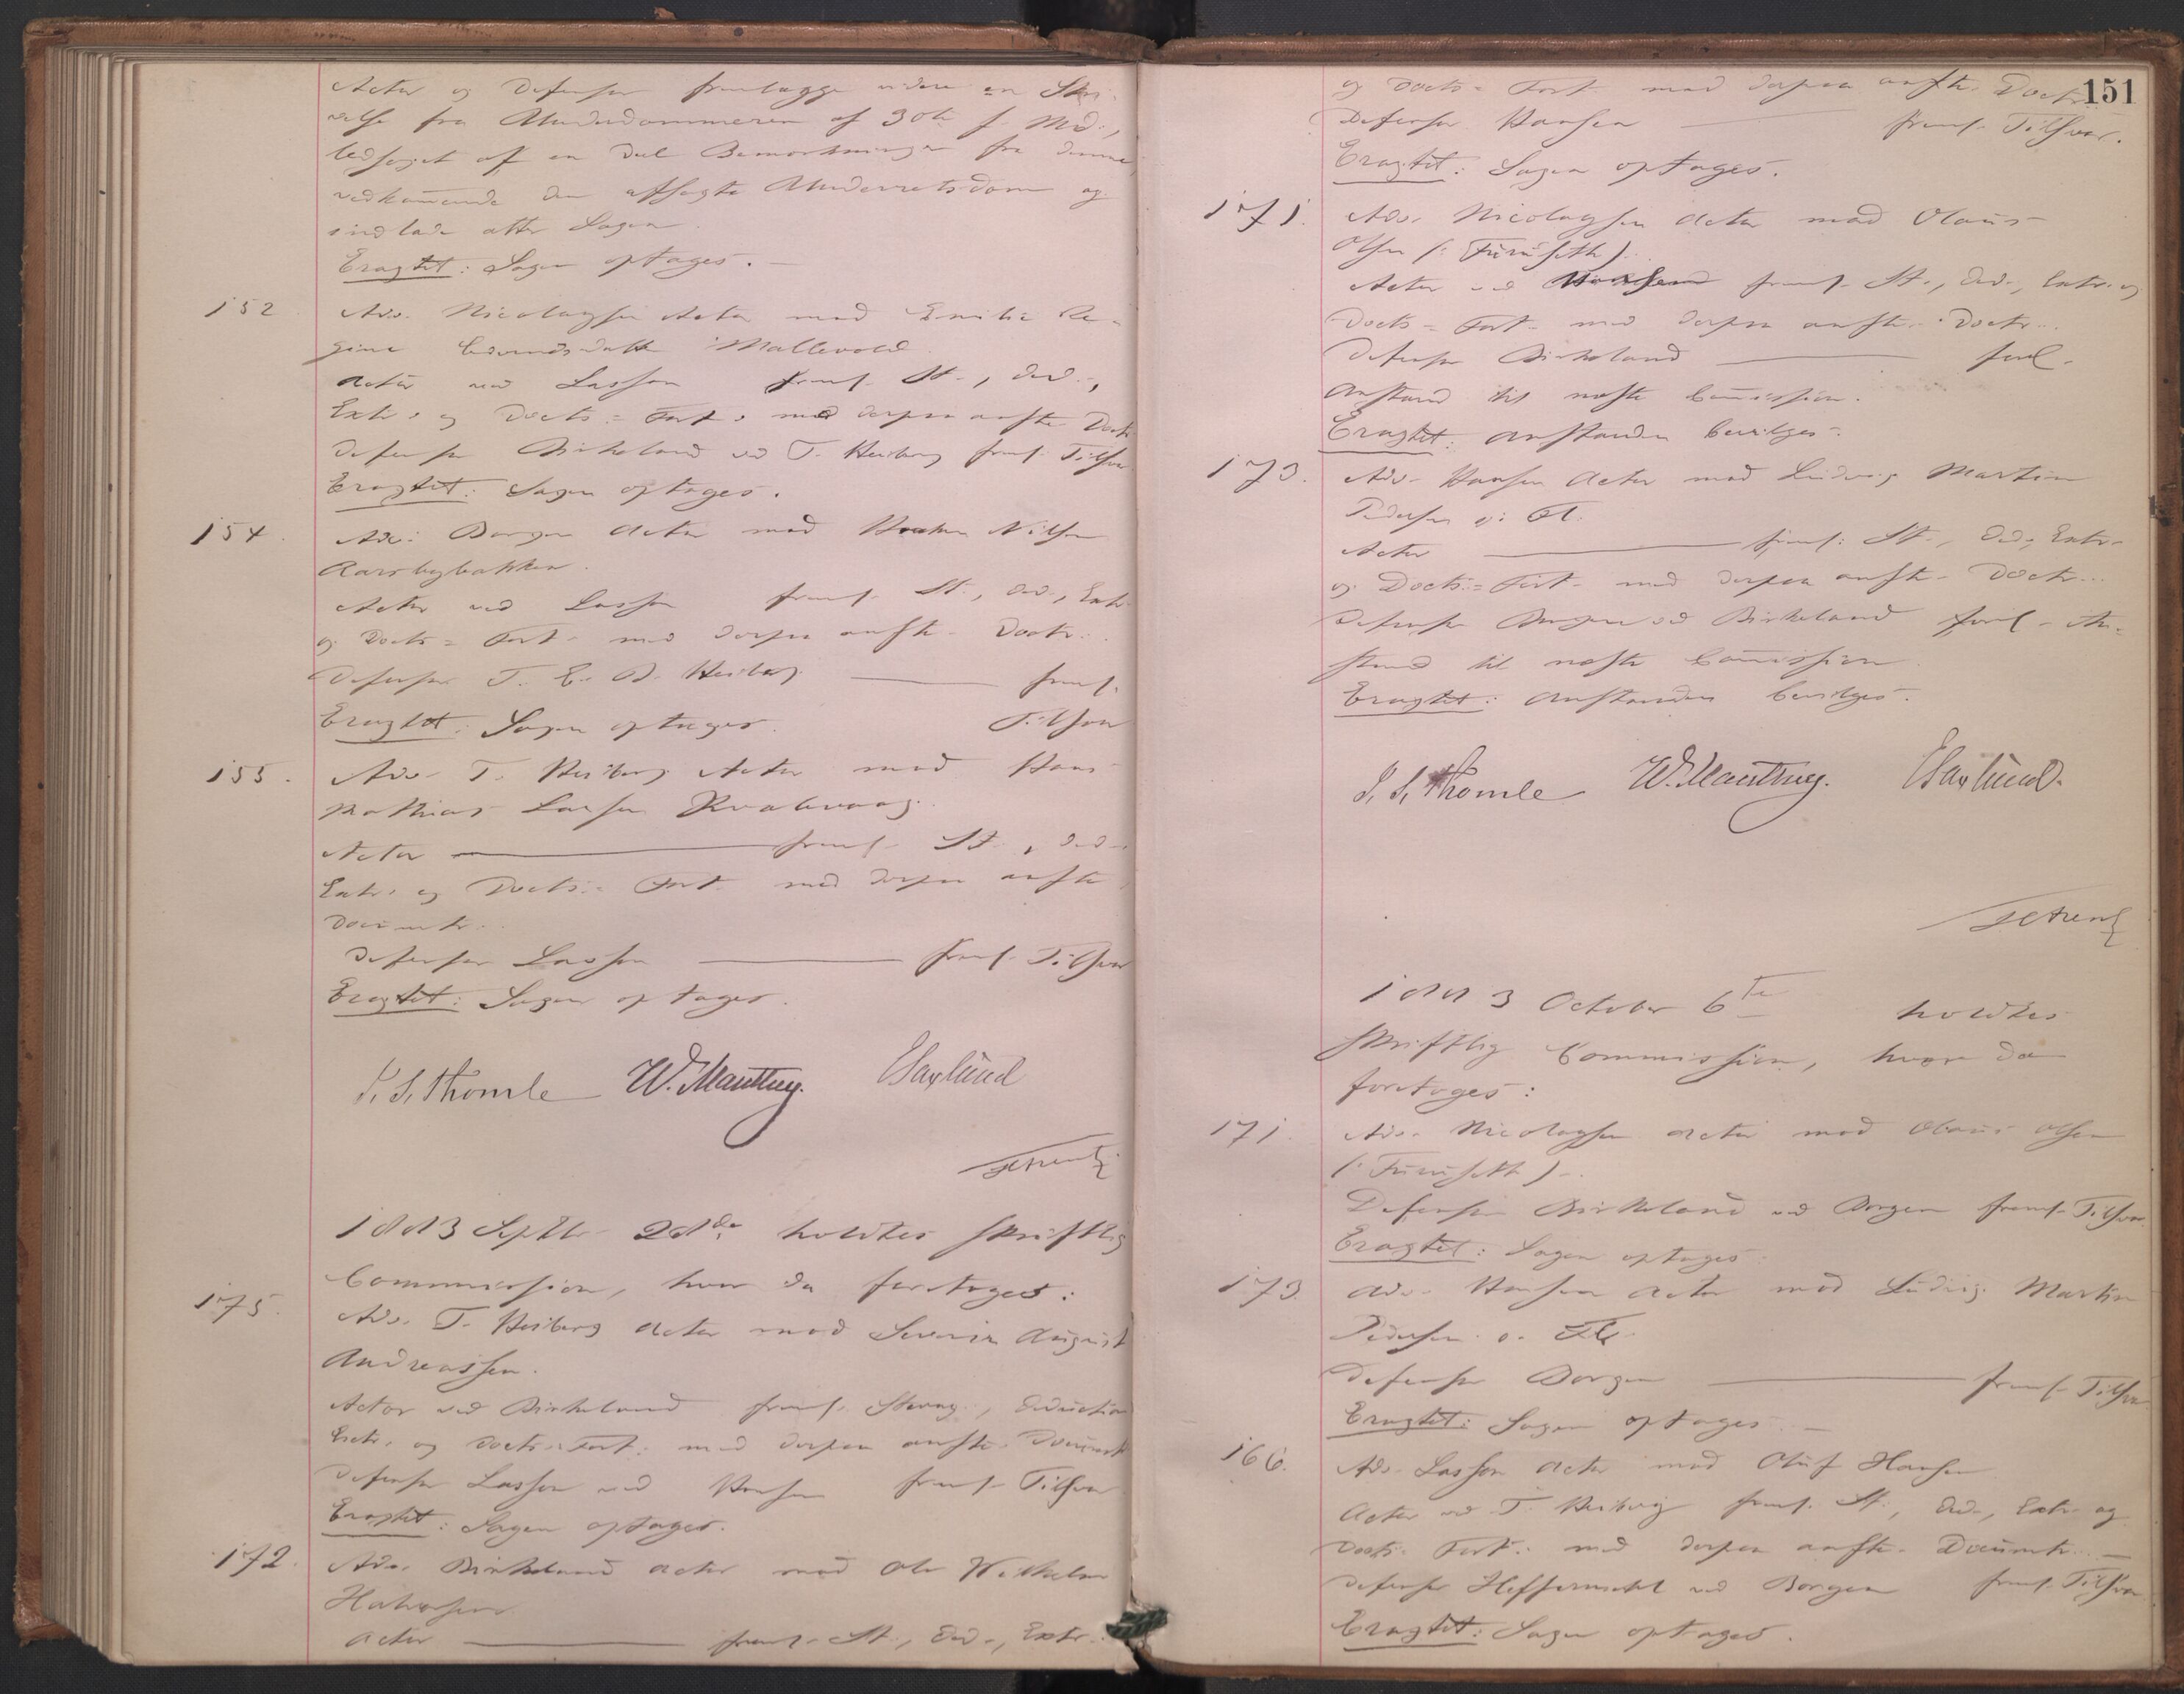 Actor og Defensor fremlægge videre en Skri-
velse fra Underdommeren af 30te f. Md.,
ledsaget af en Del Bemærkninger fra denne
vedkommende den afsagte Underretsdom og
indlade atter Sagen.
Eragtet: Sagen optages.
152
Adv. Nicolaysen Actor mod Emilie Re-
gine Mallevold
Actor ved Lasson freml. St., Ded.,
Extr. og Docts.= Fort. med derpaa anfte Doctr.
Defensor Birkeland ved T. Heiberg freml. Tilsvar
Eragtet: Sagen optages.
154.
Adv. Borgen Actor mod Nilsen
Aarsbybakken.
Actor ved Lasson freml. St., Ded., Extr.
og Docts = Fort. med derpaa anfte. Doctr.
Defensor T. E. B. Heiberg freml.
Eragtet: Sagen optages. Tilsvar
155.
Adv. T. Heiberg Actor mod Hans
Mathias Larsen Kvalevaag.
Actor freml. St., Ded.
Extr. og Docts.= Fort. med derpaa anfte
Documtr.
Defensor Lasson freml. Tilsvar
Eragtet: Sagen optages.
I. S. Thomle W. Manthey. E Saxlund
1883 Septbr. 28de holdtes skriftlig
Commission, hvor da foretoges:
175.
Adv. T. Heiberg Actor mod Severin August
Andreassen.
Actor ved Birkeland freml. Stevng., Deduction
Extr. og Docts.= Fort. med derpaa anfte. Documtr
Defensor Lasson ved Hansen freml. Tilsvar
Eragtet: Sagen optages.
172.
Adv. Birkeland Actor mod Ole Wilhelm
Halvorsen
Actor freml. St., Ded., Extr.
151
og Docts.= Fort. med derpaa anfte. Doctr.
Defensor Hansen freml. Tilsvar.
Eragtet: Sagen optages.
171.
Adv. Nicolaysen Actor mod Olaus
Olsen (: Furuseth)
Actor ved freml. St., Ded., Extr. og
Docts = Fort. med derpaa anfte. Doctr.
Defensor Birkeland forl.
Anstand til næste Commission.
Eragtet: Anstanden bevilges.
173.
Adv. Hansen Actor mod Ludvig Martin
Pedersen o. Fl.
Actor freml. St., Ded., Extr.
og Docts.= Fort. med derpaa anfte. Doctr.
Defensor Borgen ved Birkeland forl. An-
stand til næste Commission
Eragtet: Anstanden bevilges.
I. S. Thomle W. Manthey. E Saxlund.
1883 October 6te holdtes
skriftlig Commission, hvor da
foretoges:
171.
Adv. Nicolaysen Actor mod Olaus Olsen
(: Furuseth).
Defensor Birkeland ved Borgen freml. Tilsvar
Eragtet: Sagen optages.
173.
Adv. Hansen Actor mod Ludvig Martin
Pedersen o. Fl.
Defensor Borgen freml. Tilsvar
Eragtet: Sagen optages.
166.
Adv. Lasson Actor mod Oluf Hansen
Actor ved T. Heiberg freml. St., Ded., Extr. og
Docts. Fort. med derpaa anfte. Documtr.
Defensor Heffermehl ved Borgen freml. Tilsvar
Eragtet: Sagen optages.